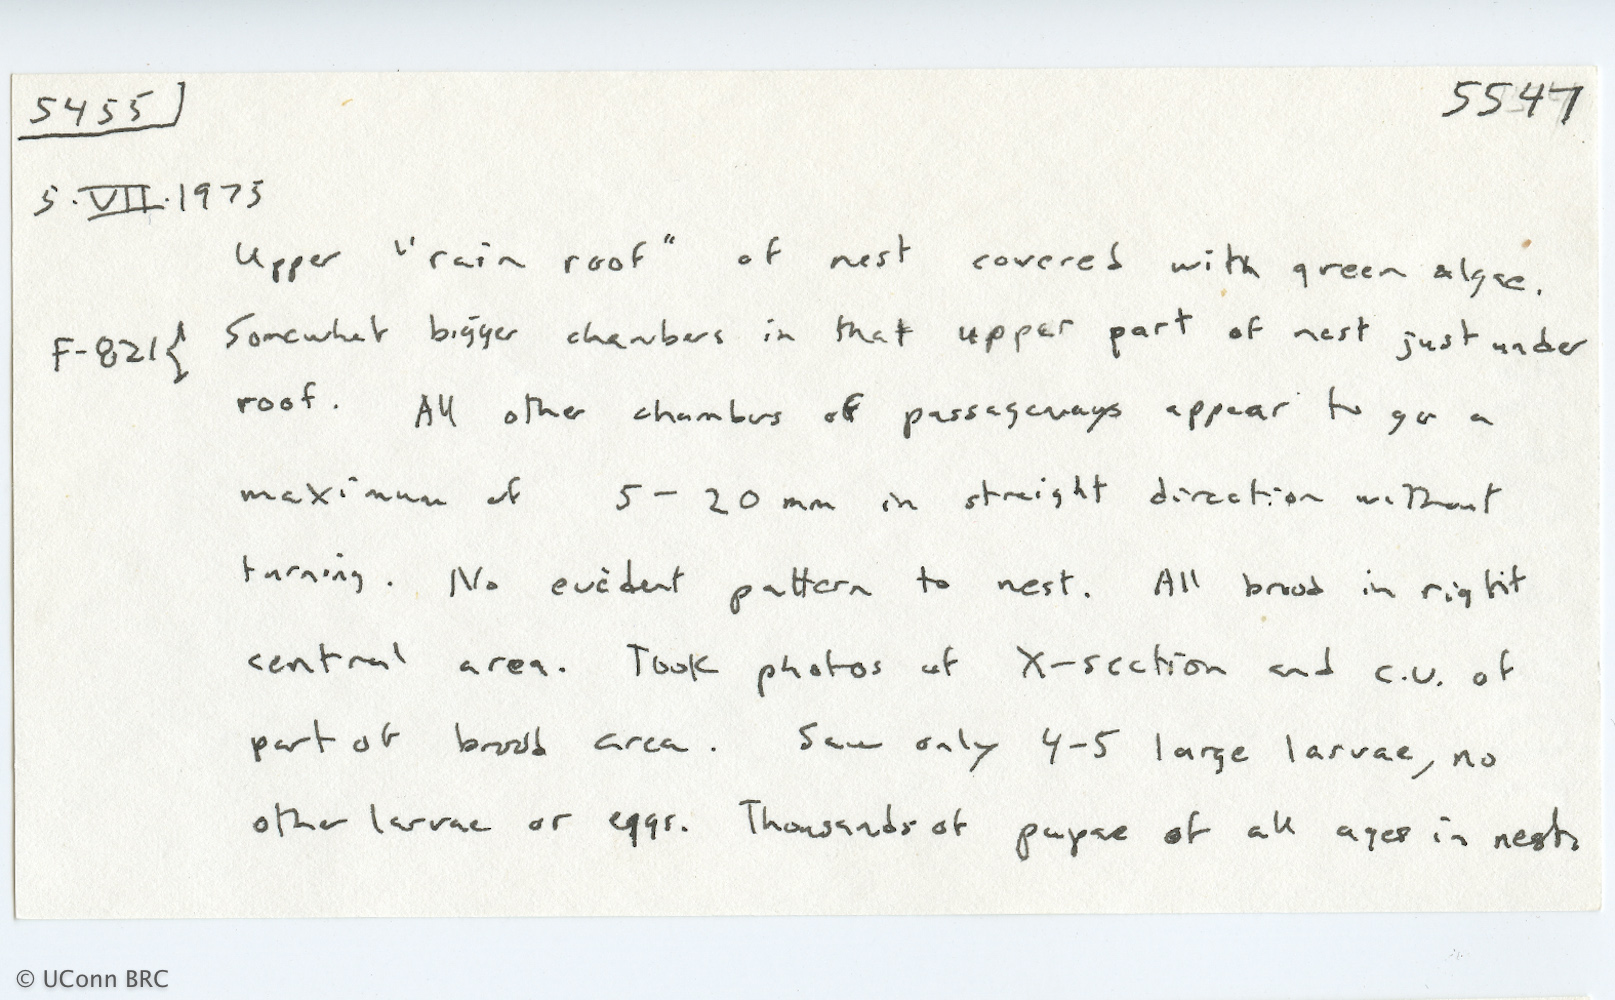 5455
5547
5.VII.1975
Upper "rain roof" of nest covered with green algae.
F-821{ Somewhat bigger chambers in that upper part of nest just under
roof. All other chambers of passageways appear to go a
maximum of 5-20 mm in straight direction without
turning. No evident pattern to nest. All brood in right
central area. Took photos of X-section and c.u. of
part of brood area. Saw only 4-5 large larvae, no
other larvae or eggs. Thousands of pupae of all ages in nest.
© UConn BRC